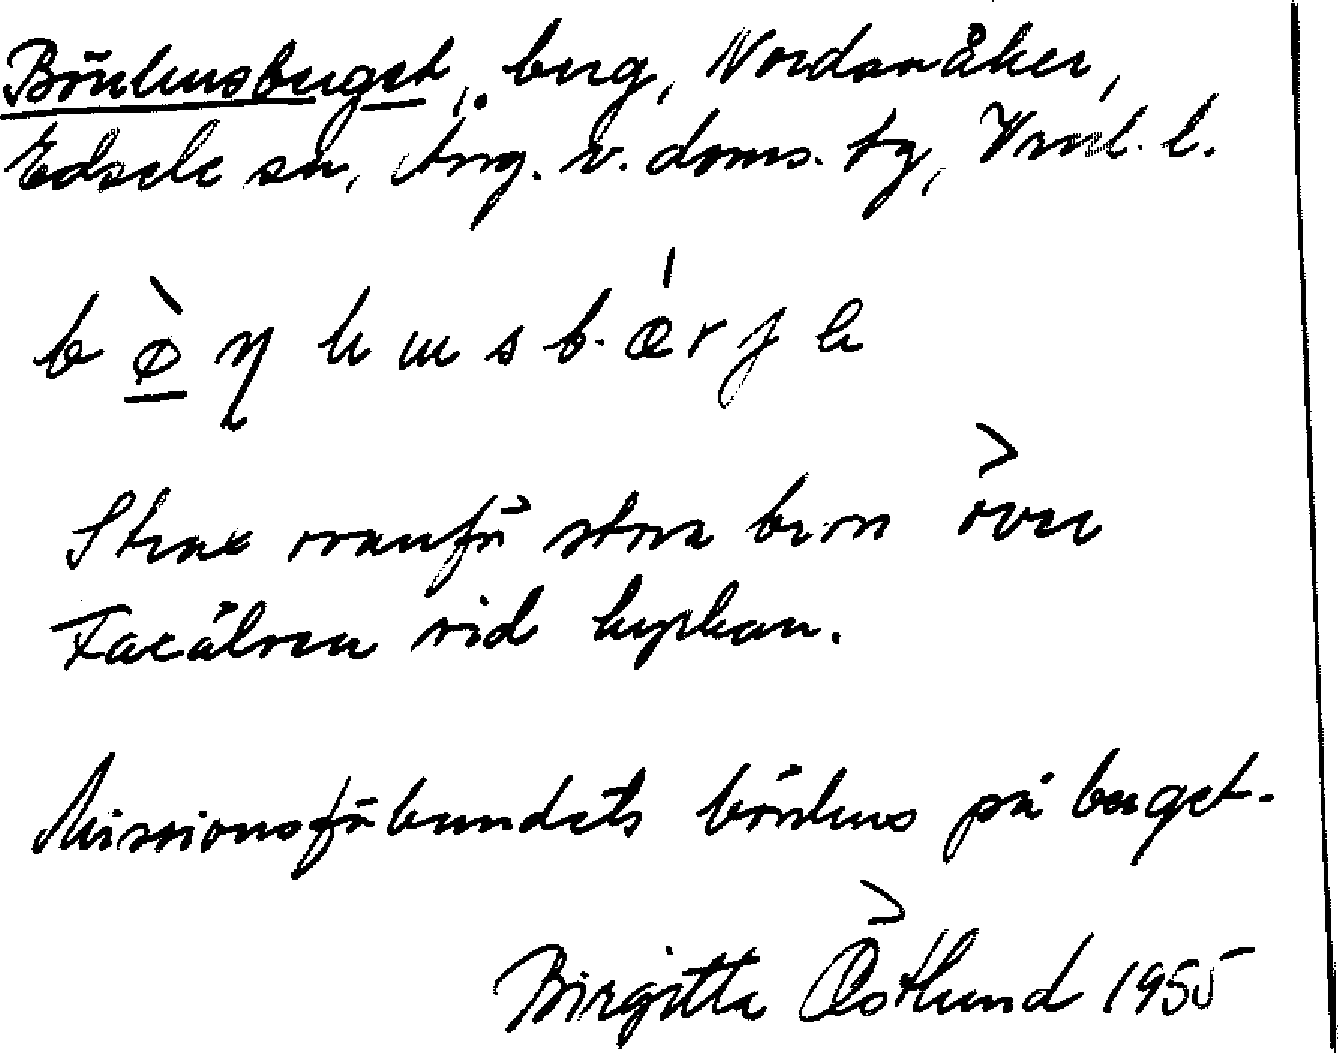 Bönhusberget, berg, Nordanåker,
Edsele sn, Ång. v. doms. tg, Vnrl. l.
b ø̀ ŋ h ɯ s b. ǽ r j e
Strax ovanför stora bron över
Faxälven vid kyrkan.
Missionsförbundets bönhus på berget.
Birgitta Östlund 1955